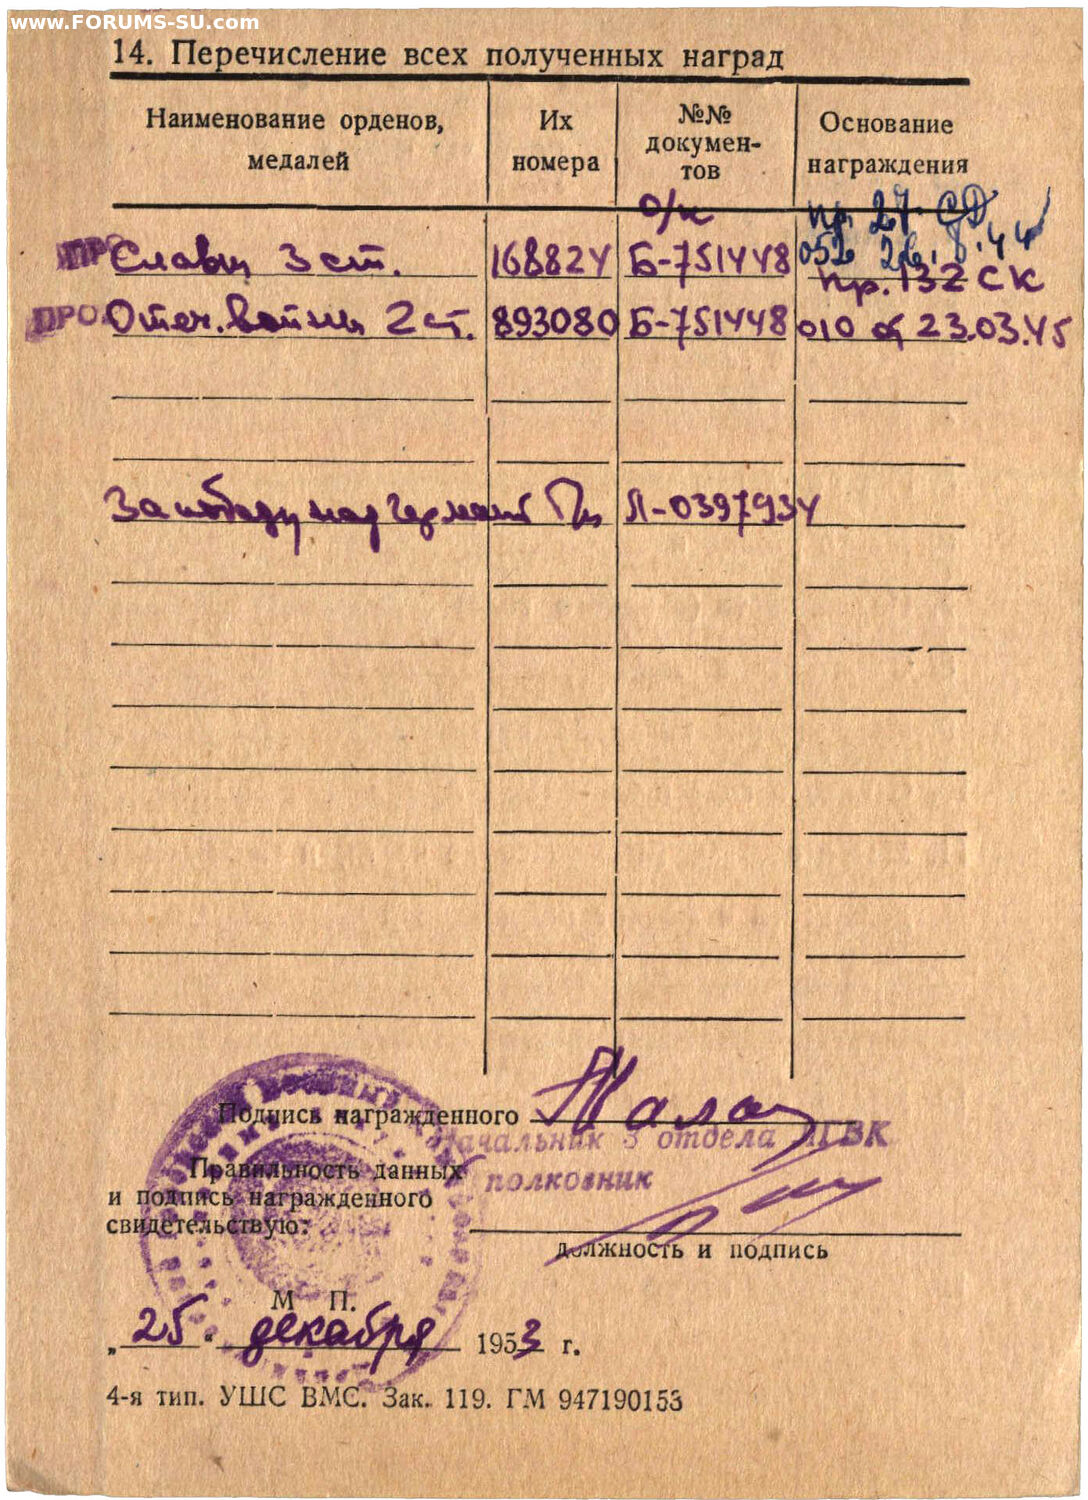 www.FORUMS-SU.com
14. Перечисление всех полученных наград
Наименование орденов, медалей
Их номера
№№ документов
Основание награждения
о/к
пр. 27 СД
ПРО Славы 3 ст. 168824 Б-751448 052 26.8.44
пр. 132 СК
ПРО Отеч. войны 2 ст. 893080 Б-751448 010 от 23.03.45
За победу над Германией Л-0397934
Подпись награжденного
Начальник 3 отдела ЛГВК
Правильность данных
полковник
и подпись награжденного
свидетельствую:
должность и подпись
М П.
„25“ декабря 1953 г.
4-я тип. УШС ВМС. Зак. 119. ГМ 947190153